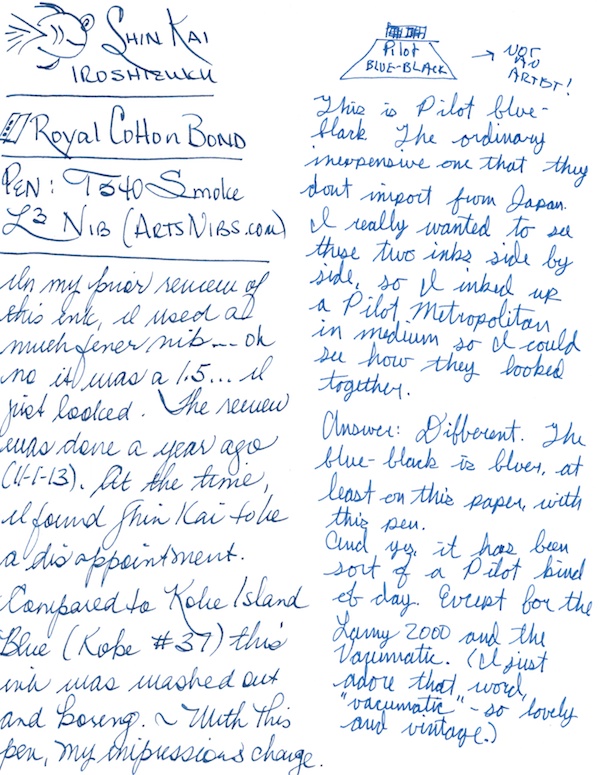 Shin Kai
Iroshizuku
Royal Cotton Bond
Pen: T540 Smoke
L3 Nib (ArtsNibs.com)
In my prior review of
this ink, I used a
much finer nib... oh
no it was a 1.5... I
just looked. The review
was done a year ago
(11-1-13). At the time,
I found Shin Kai to be
a disappointment.
Compared to Kobe Island
Blue (Kobe #37) this
ink was washed out
and boreng. ~ With this
pen, my impressions change.
Pilot
Blue-Black
→ Not
an
artist!
This is Pilot blue-
black. The ordinary
inexpensive one that they
dont import from Japan.
I really wanted to see
these two inks side by
side, so I inked up
a Pilot Metropolitan
in medium so I could
see how they looked
together.
Answer: Different. The
blue-black is bluer, at
least on this paper, with
this pen.
And yes, it has been
sort of a Pilot kind
of day. Except for the
Lamy 2000 and the
Vacumatic. (I just
adore that word,
"vacumatic" - so lovely
and vintage.)